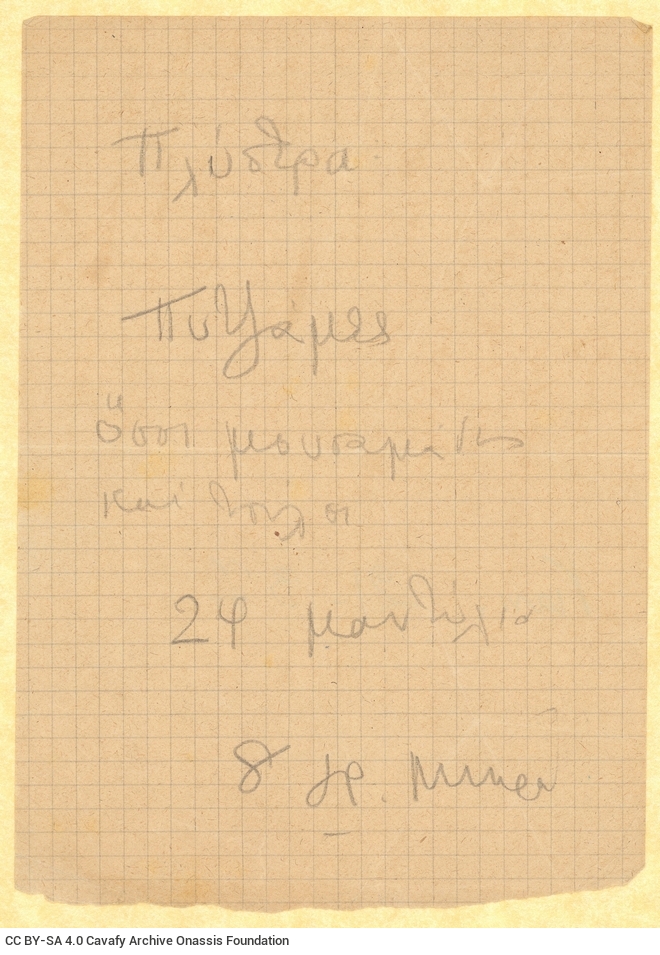 Πλύστρα
Πυζάμες
Ὅσοι μουσαμάδες
καὶ
24 μαντήλια
8 γρ.
CC BY-SA 4.0 Cavafy Archive Onassis Foundation